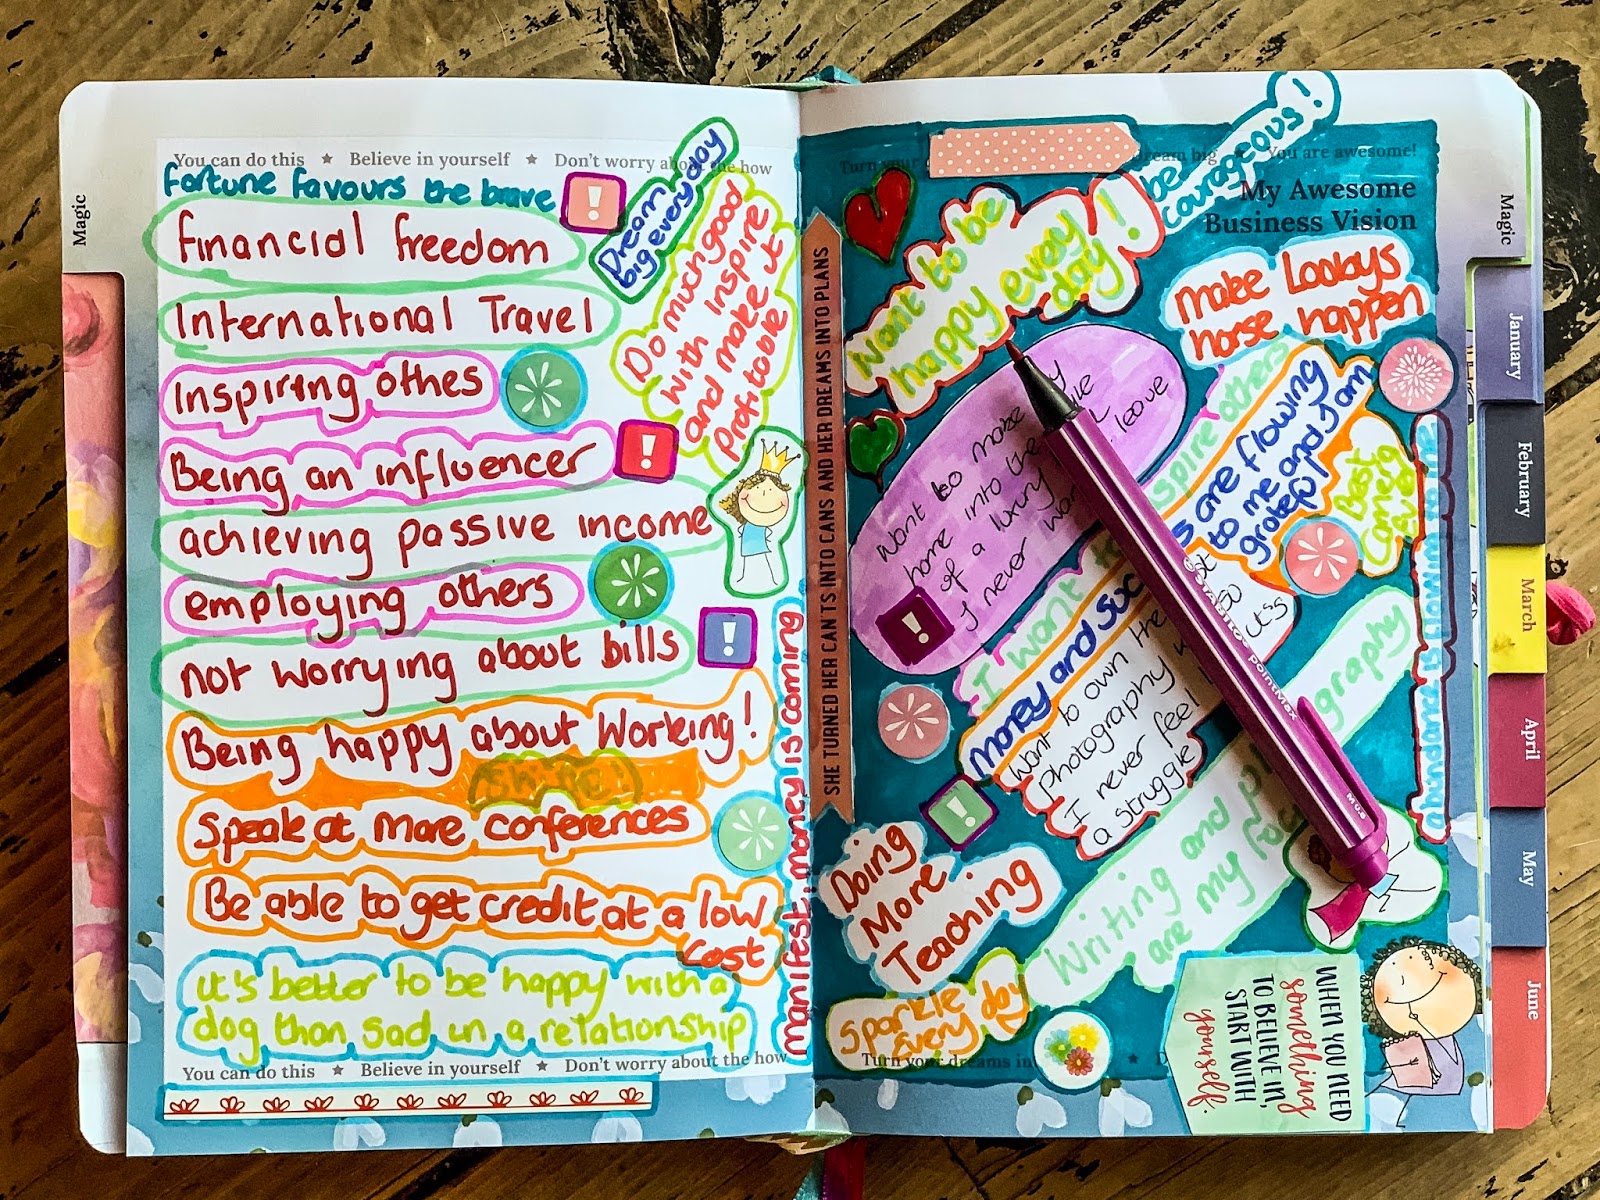 You can do this ★ Believe in yourself ★ Don't worry about the how
fortune favours the brave
!
Dream
big every day
financial freedom
International Travel
Inspiring othes
Being an influencer
!
achieving passive income
employing others
not worrying about bills
!
Being happy about working!
Shine!
Speak at more conferences
Be able to get credit at a low
cost
it's better to be happy with a
dog than sad in a relationship
Do much good
with inspire
and make it
Profitable
manifest: money is coming
You can do this ★ Believe in yourself ★ Don't worry about the how
Magic
SHE TURNED HER CAN'TS INTO CANS AND HER DREAMS INTO PLANS
Turn your
Dream big
You are awesome!
My Awesome
Business Vision
be
courageous!
want to be
happy every
day!
Make Lookys
horse happen
want to make
home into the
of a luxury
I never
leave
!
spire others
I want
money and suc
s are flowing
to me and I am
grateful
Best
coming
ever
want to own the
photography
it's
I never feel
a struggle
!
Writing and
graphy
are my
Doing
More
Teaching
Sparkle
Every day
Turn your dreams in
abundance is flowing to me
WHEN YOU NEED
something
TO BELIEVE IN,
START WITH
yourself.
STABILO pointMax
Magic
January
February
March
April
May
June